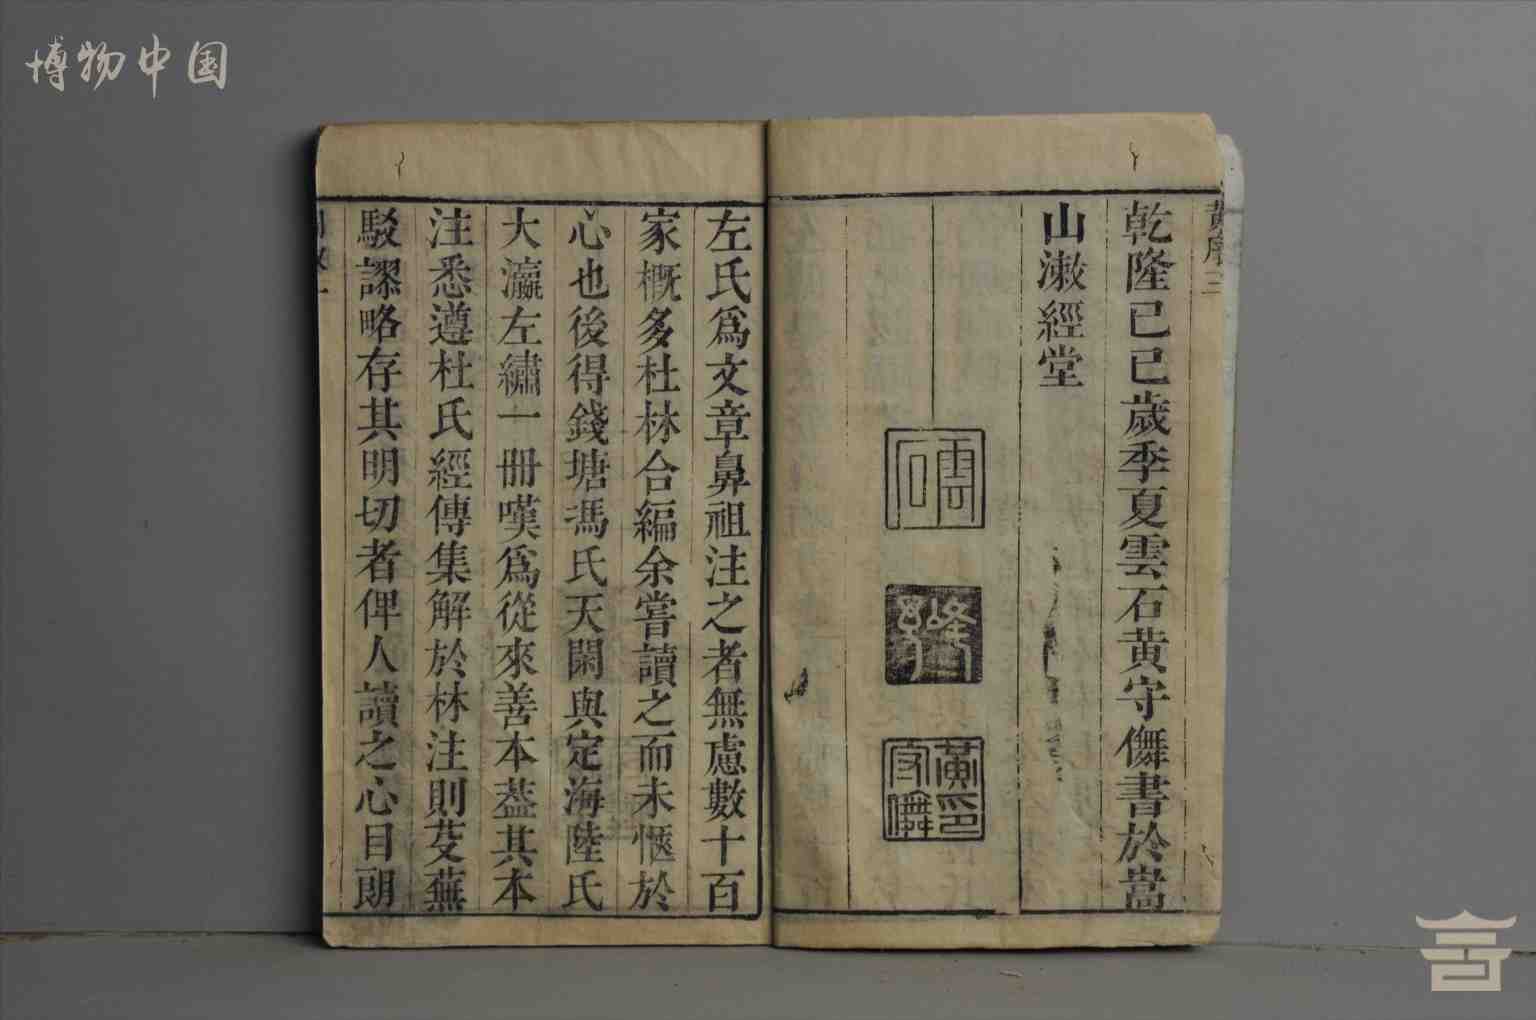 博物中国
黃序三
乾隆己巳歲季夏雲石黄守儛書於嵩
山漱經堂
黃印守儛
左氏爲文章鼻祖注之者無慮數十百
家概多杜林合編余嘗讀之而未愜於
心也後得錢塘馮氏天閑與定海陸氏
大瀛左繡一冊嘆爲從來善本葢其本
注悉遵杜氏經傳集解於林注則芟蕪
駁謬略存其明切者俾人讀之心目朗